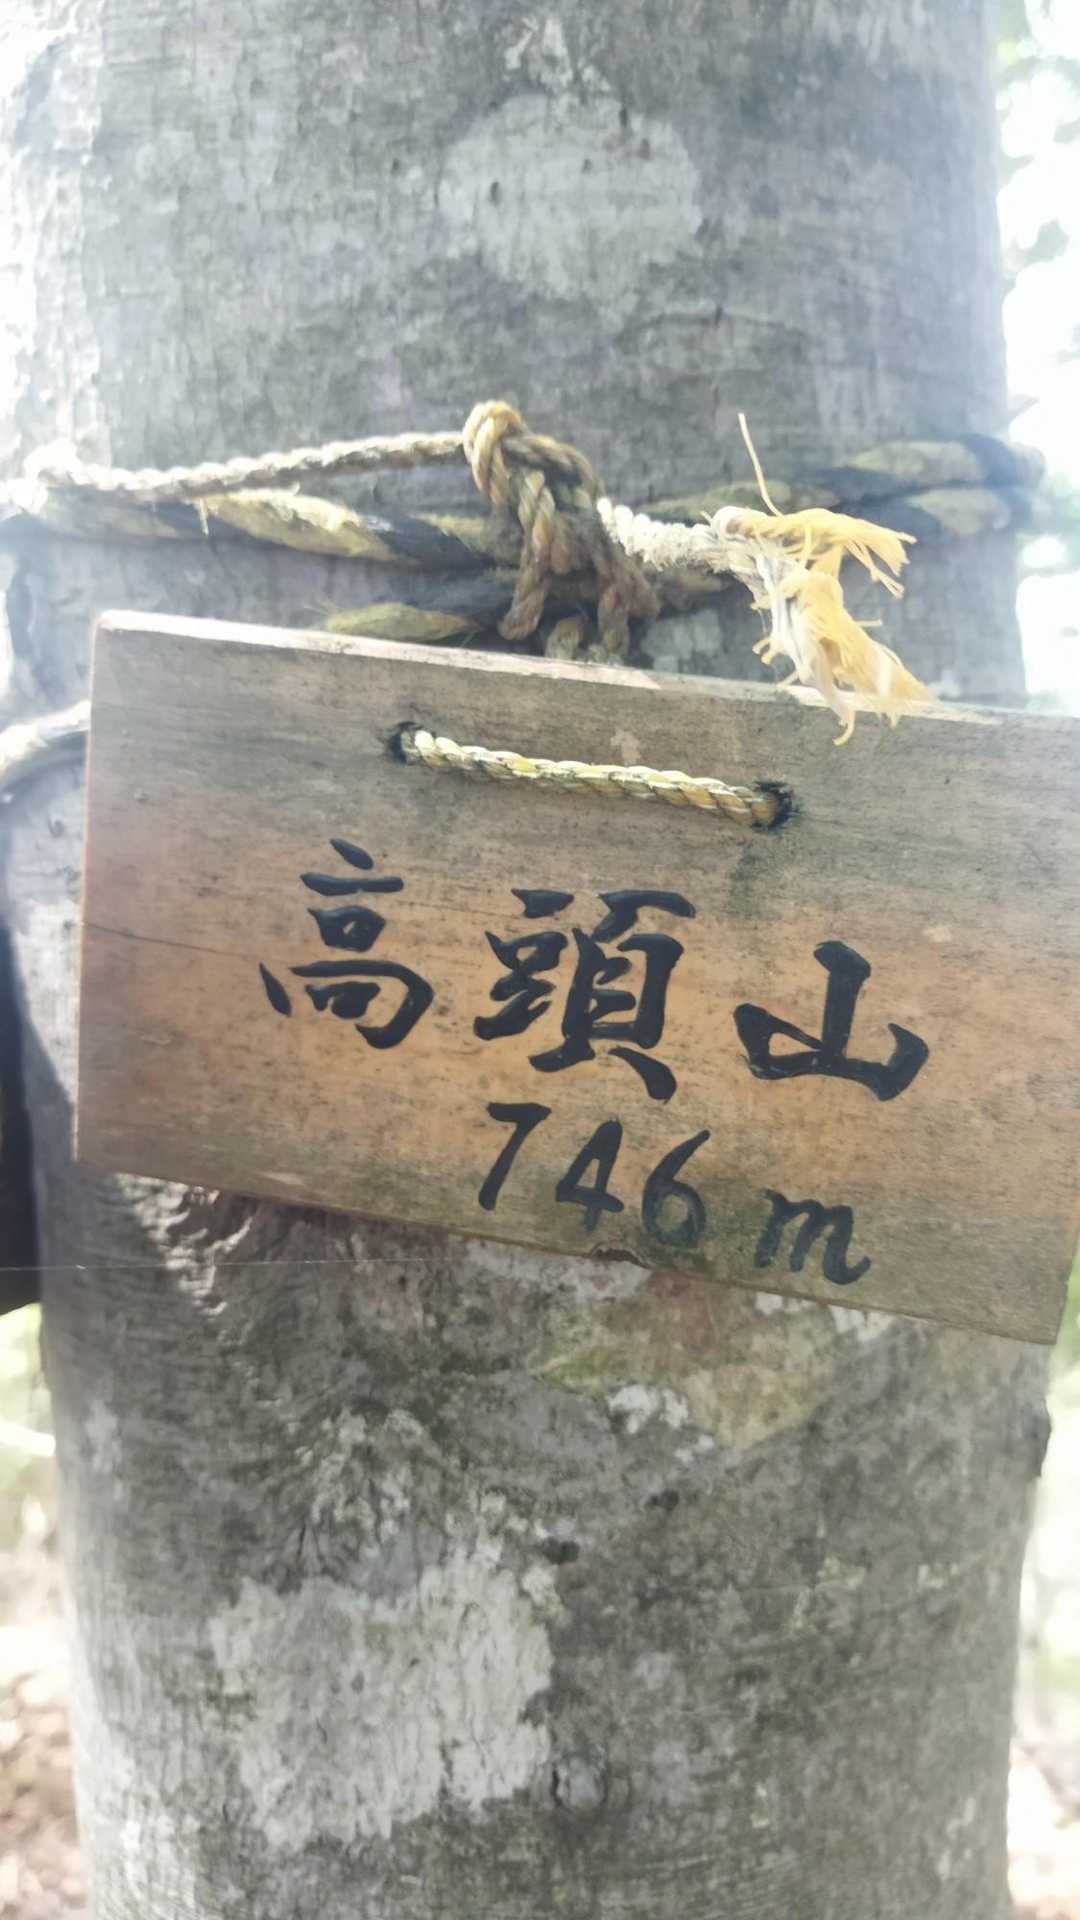 高頭山
746m